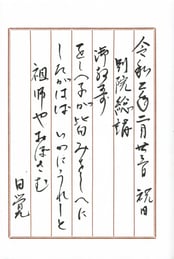 令和 年二月廿三日 祝日
別院総講
御教歌
をしへ子が皆みをしへに
したがはば いかにうれしと
祖師やおぼさむ
日覚